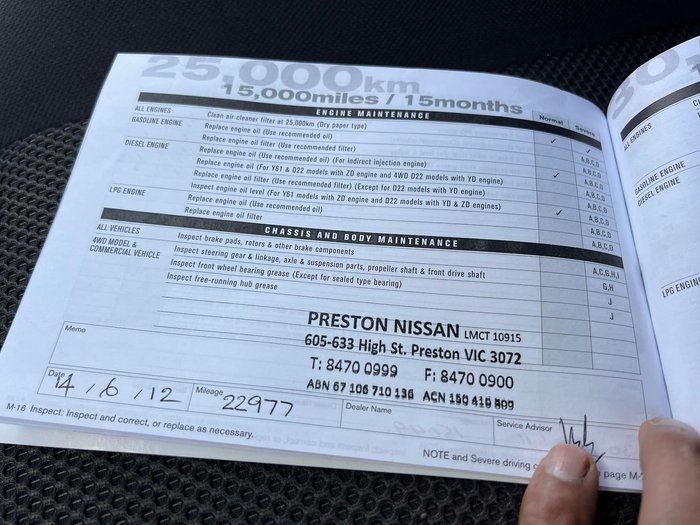 25,000km
15,000miles / 15months
ENGINE MAINTENANCE Normal Severe
ALL ENGINES Clean air cleaner filter at 25,000km (Dry paper type) ✓
GASOLINE ENGINE Replace engine oil (Use recommended oil) ✓ A,B,C,D
Replace engine oil filter (Use recommended filter) A,B,C,D
DIESEL ENGINE Replace engine oil (Use recommended oil) (For indirect injection engine) A,B,C,D
Replace engine oil (For Y61 & D22 models with ZD engine and 4WD D22 models with YD engine) ✓ A,B,C,D
Replace engine oil filter (Use recommended filter) (Except for D22 models with YD engine) A,B,C,D
Inspect engine oil level (For Y61 models with ZD engine and D22 models with YD & ZD engines)
LPG ENGINE Replace engine oil (Use recommended oil) ✓ A,B,C,D
Replace engine oil filter A,B,C,D
CHASSIS AND BODY MAINTENANCE
ALL VEHICLES Inspect brake pads, rotors & other brake components A,C,G,H,I
4WD MODEL & COMMERCIAL VEHICLE Inspect steering gear & linkage, axle & suspension parts, propeller shaft & front drive shaft G,H
Inspect front wheel bearing grease (Except for sealed type bearing) J
Inspect free-running hub grease J
PRESTON NISSAN LMCT 10915
605-633 High St. Preston VIC 3072
T: 8470 0999 F: 8470 0900
ABN 67 106 710 136 ACN 150 416 809
Memo
Date 14/6/12 Mileage 22977 Dealer Name Service Advisor
M-16 Inspect: Inspect and correct, or replace as necessary.
NOTE and Severe driving page M-
ALL ENGINES
GASOLINE ENGINE
DIESEL ENGINE